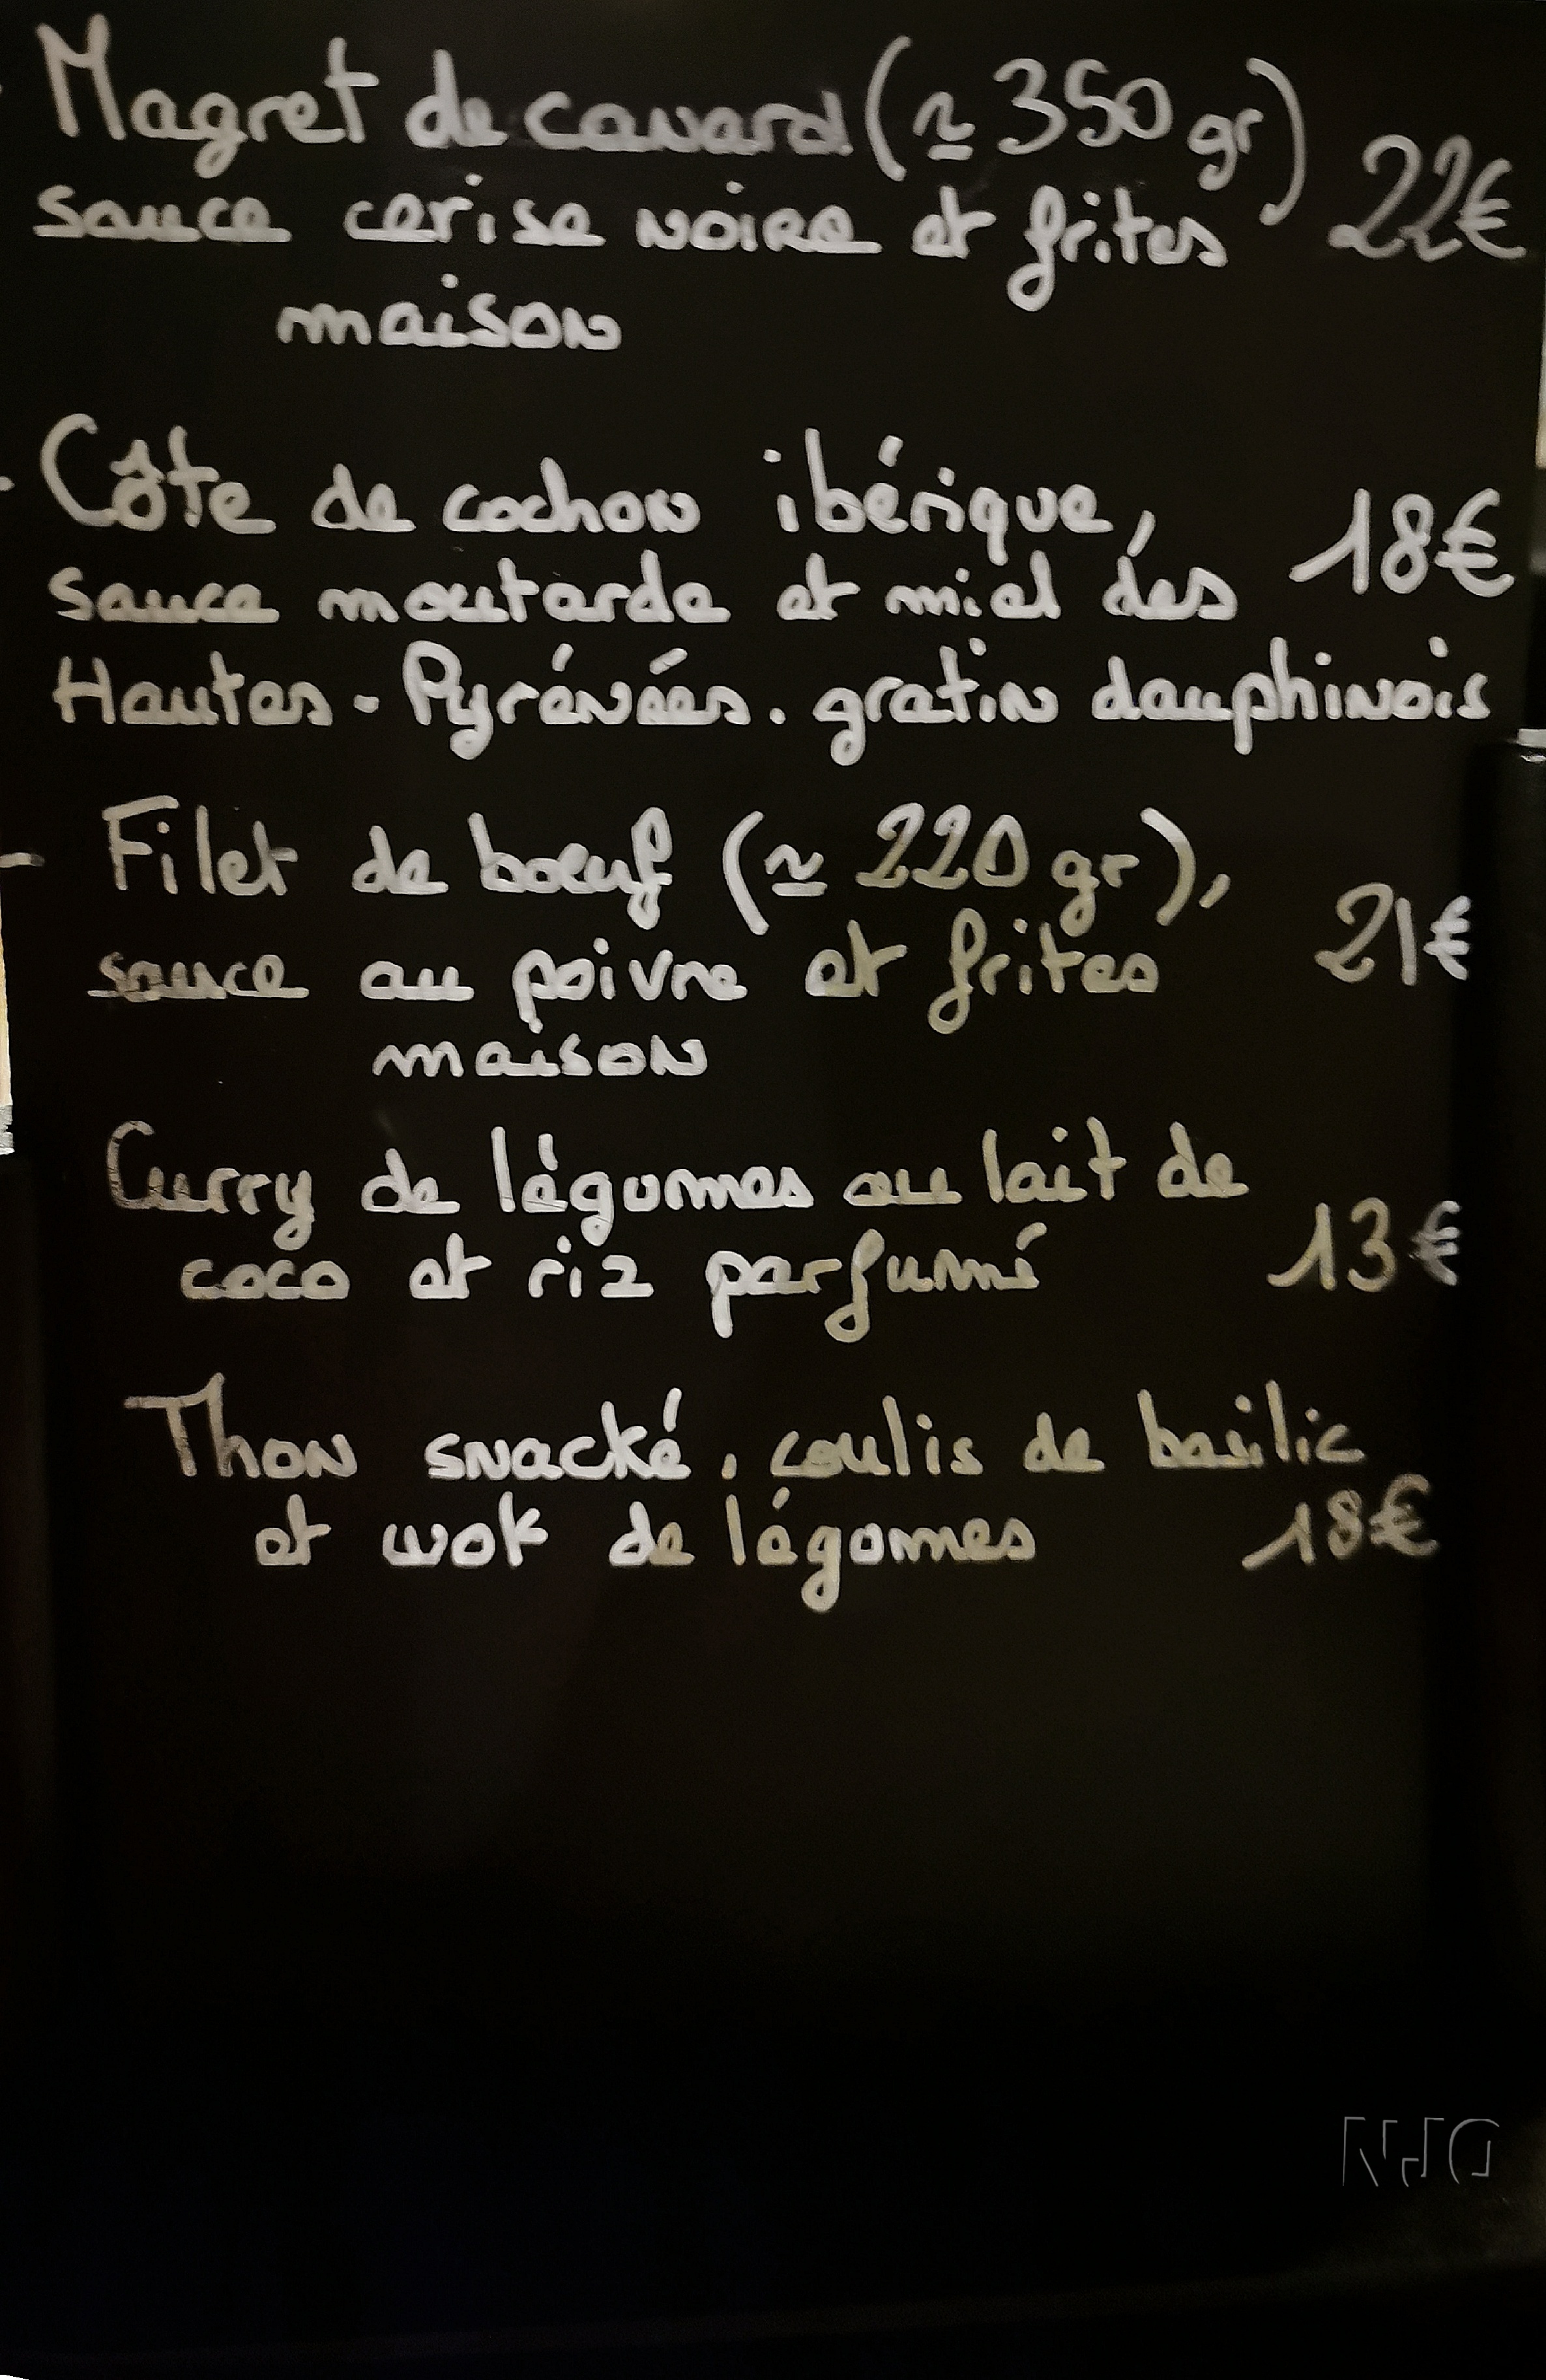 - Magret de canard (≃ 350 gr) 22€
sauce cerise noire et frites
maison
- Côte de cochon ibérique, 18€
sauce moutarde et miel des
Hautes-Pyrénées. gratin dauphinois
- Filet de bœuf (≃ 220 gr), 21€
sauce au poivre et frites
maison
Curry de légumes au lait de
coco et riz parfumé 13€
Thon snacké, coulis de basilic
et wok de légumes 18€
NJG